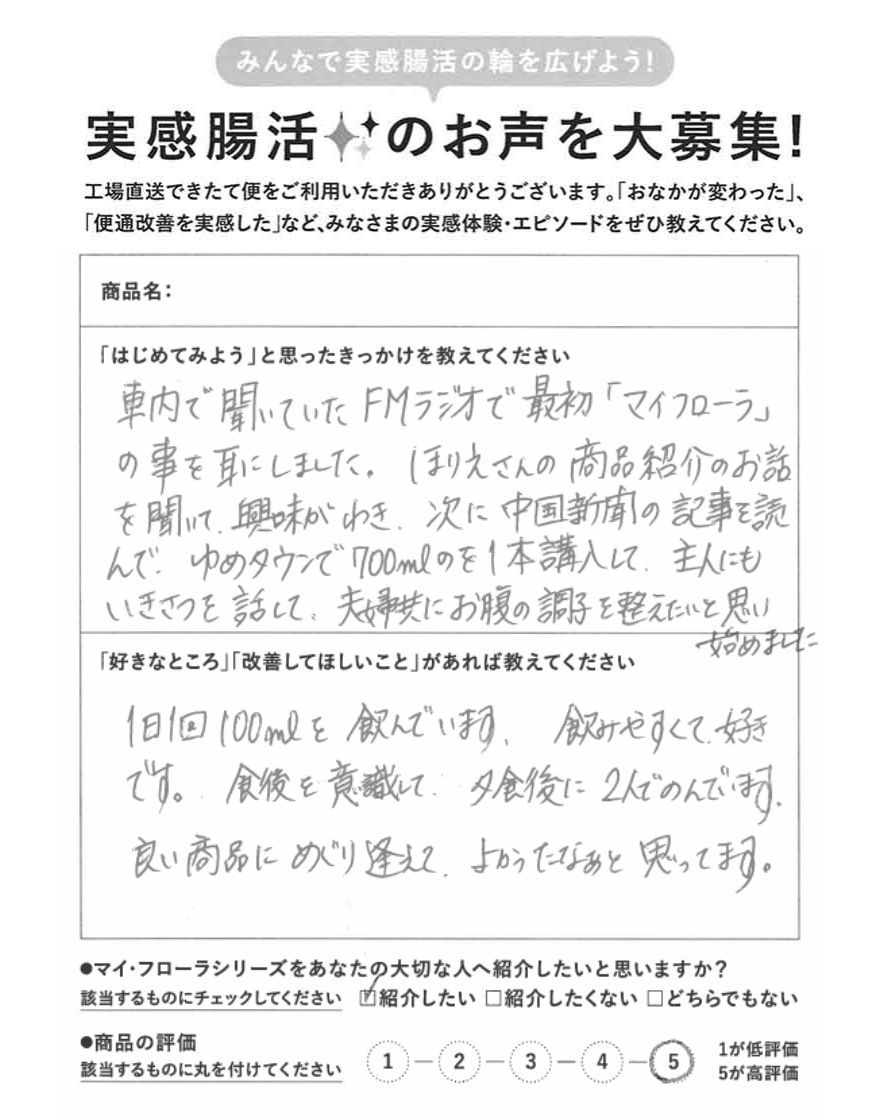 みんなで実感腸活の輪を広げよう!
実感腸活のお声を大募集!
工場直送できたて便をご利用いただきありがとうございます。「おなかが変わった」、
「便通改善を実感した」など、みなさまの実感体験・エピソードをぜひ教えてください。
商品名:
「はじめてみよう」と思ったきっかけを教えてください
車内で聞いていたFMラジオで最初「マイフローラ」
の事を耳にしました。ほりえさんの商品紹介のお話
を聞いて、興味がわき、次に中国新聞の記事を読
んで、ゆめタウンで700mlのを1本講入して、主人にも
いきさつを話して、夫婦共にお腹の調子を整えたいと思い
始めました
「好きなところ」「改善してほしいこと」があれば教えてください
1日1回100mlを飲んでいます、飲みやすくて、好き
です。食後を意識して、夕食後に2人でのんでいます、
良い商品にめぐり逢えて、よかったなぁと思ってます。
●マイ・フローラシリーズをあなたの大切な人へ紹介したいと思いますか?
該当するものにチェックしてください ☑紹介したい □紹介したくない □どちらでもない
●商品の評価
該当するものに丸を付けてください 1 — 2 — 3 — 4 — 5
1が低評価
5が高評価